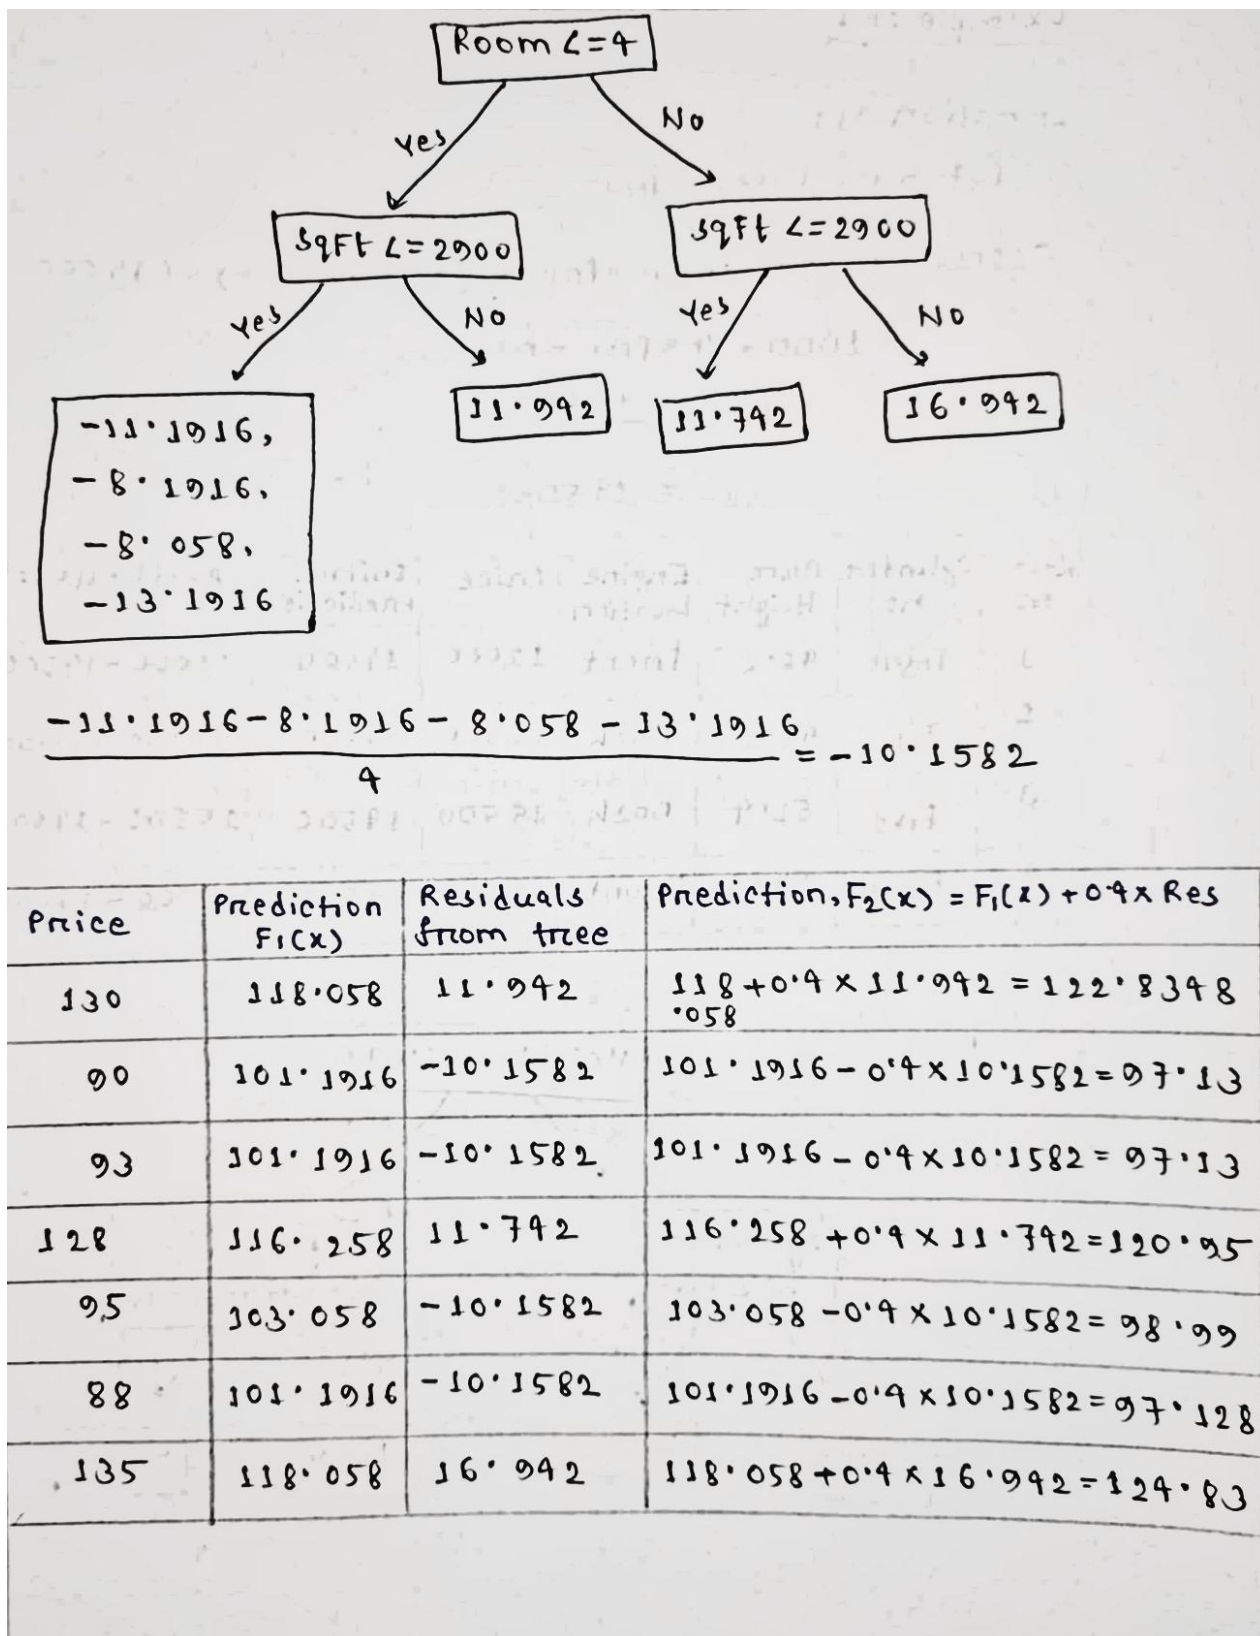 Room <=4
Yes
No
SqFt <=2900
SqFt <=2900
Yes
No
Yes
No
-11.1916,
-8.1916,
-8.058,
-13.1916
11.942
11.742
16.942
-11.1916-8.1916-8.058-13.1916
4
=-10.1582
Price
Prediction F₁(x)
Residuals from tree
Prediction, F₂(x) = F₁(x) + 0.4 x Res
130
118.058
11.942
118.058 +0.4 x 11.942 = 122.8348
90
101.1916
-10.1582
101.1916-0.4x10.1582=97.13
93
101.1916
-10.1582
101.1916-0.4x10.1582=97.13
128
116.258
11.742
116.258 +0.4 x 11.742=120.95
95
103.058
-10.1582
103.058-0.4 x 10.1582=98.99
88
101.1916
-10.1582
101.1916-0.4x10.1582=97.128
135
118.058
16.942
118.058+0.4x16.942=124.83